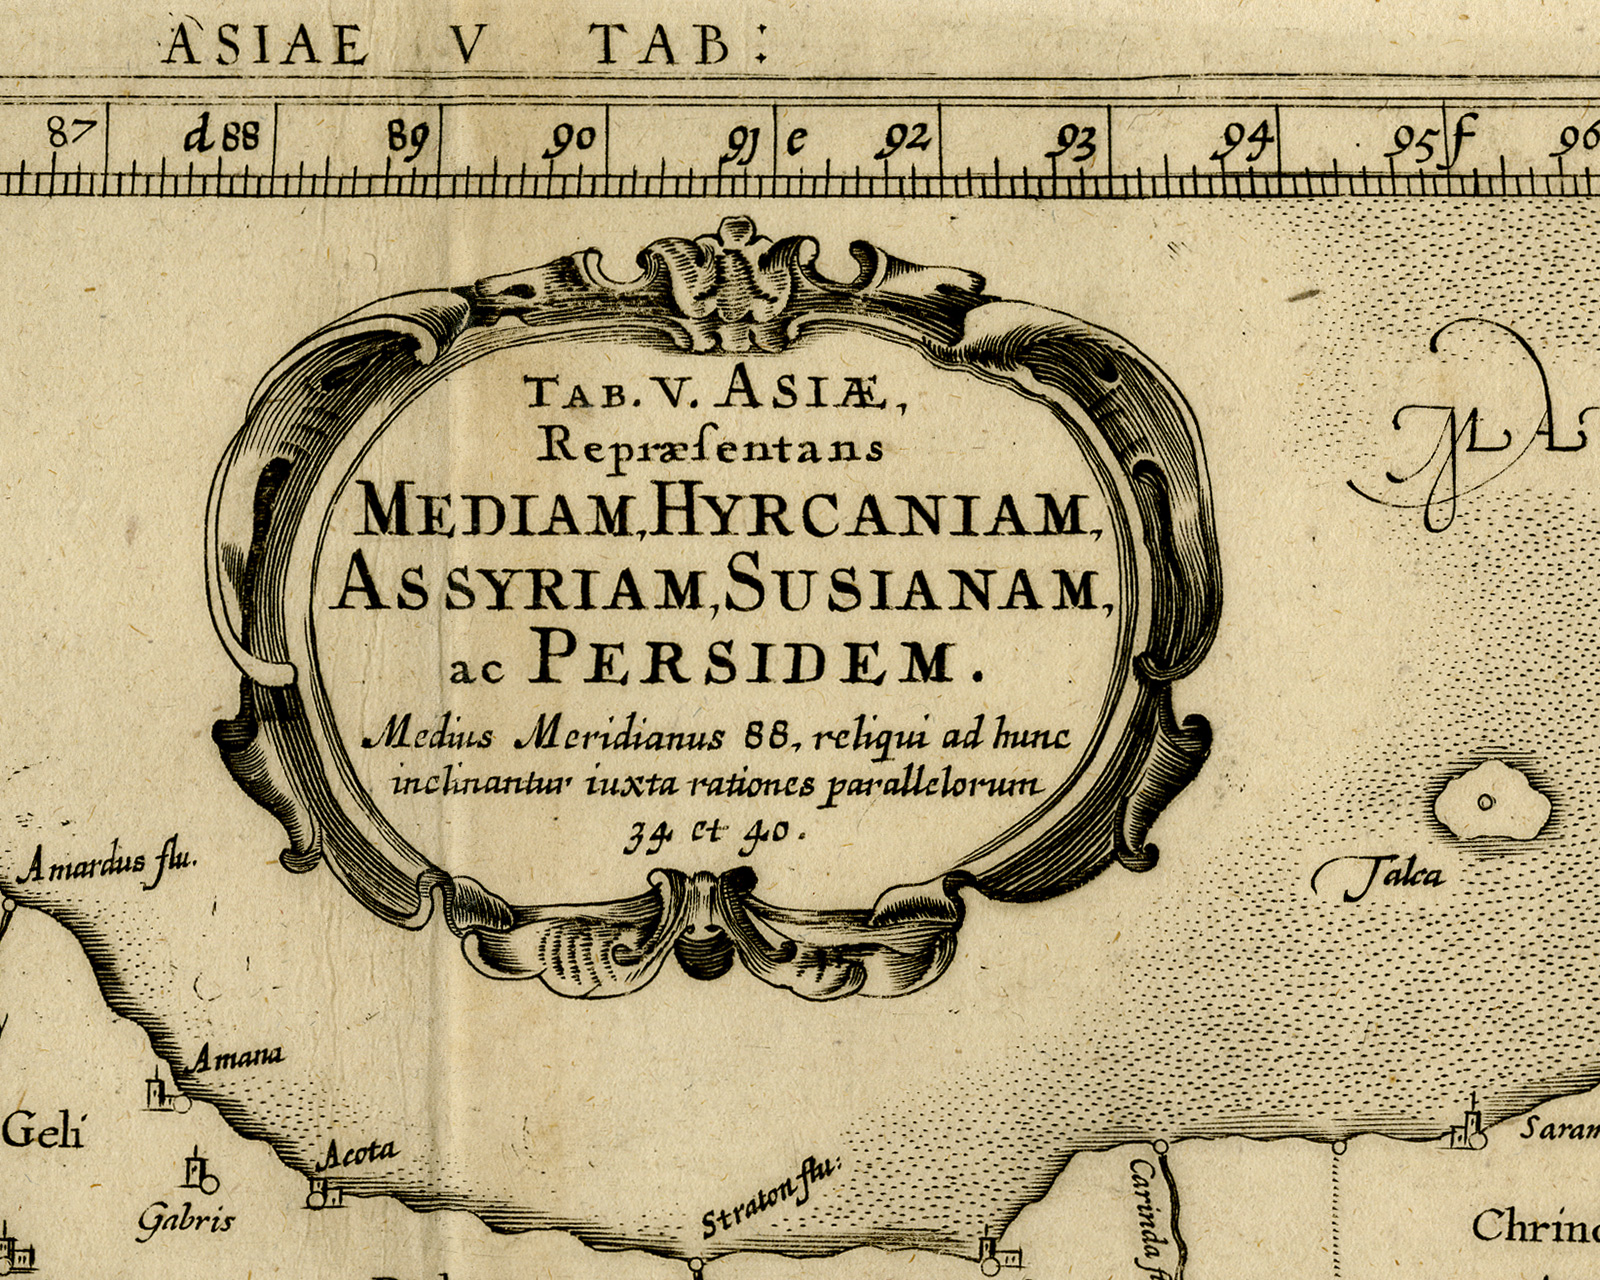 ASIAE V TAB:
87 d 88 89 90 91 e 92 93 94 95 f 96
TAB. V. ASIÆ,
Repræſentans
MEDIAM, HYRCANIAM,
ASSYRIAM, SUSIANAM,
ac PERSIDEM.
Medius Meridianus 88, reliqui ad hunc
inclinantur iuxta rationes parallelorum
34 et 40.
MA
Talca
Amardus flu.
Amana
Geli
Acota
Gabris
Straton flu:
Carinda